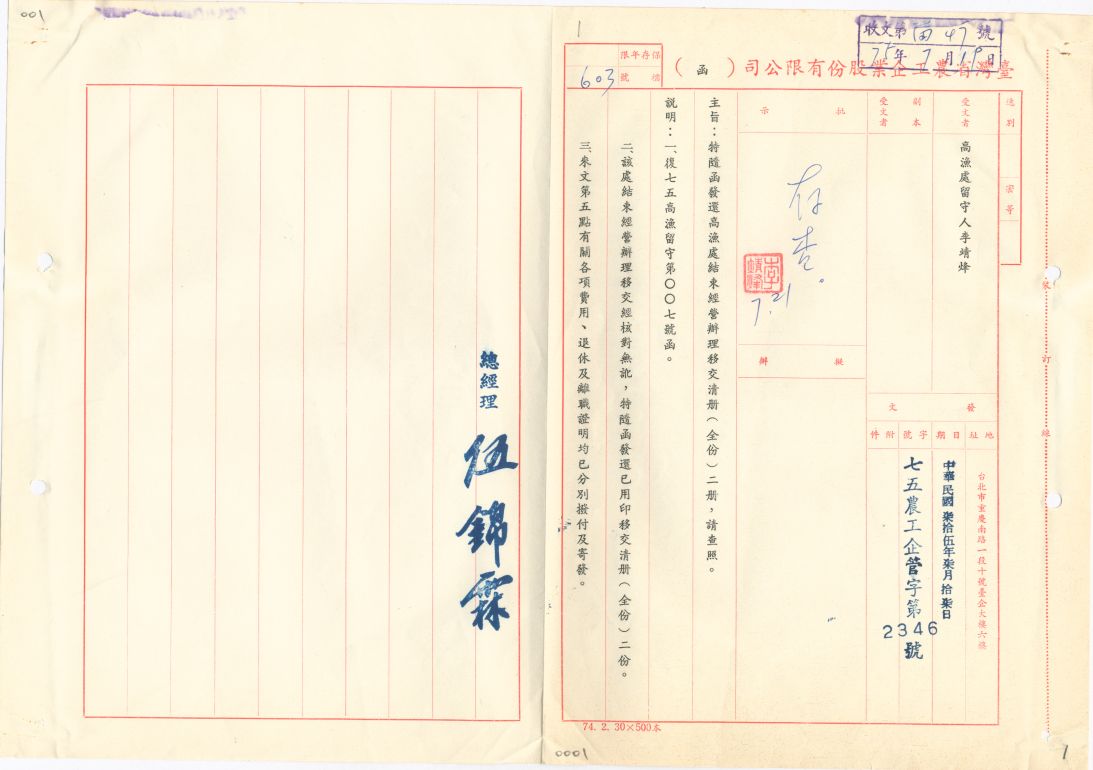 001
1
收文第 田47 號
75年7月19日
臺灣省農工企業股份有限公司（函）
保存年限
檔號
603
速別
密等
受文者
高漁處留守人李靖烽
副本受文者
批示
存查。
7.21
擬辦
發文
地址
日期
字號
附件
台北市重慶南路一段十號臺企大樓六樓
中華民國柒拾伍年柒月拾柒日
七五農工企管字第2346號
主旨：特隨函發還高漁處結束經營辦理移交清册（全份）二册，請查照。
說明：一、復七五高漁留守第〇〇七號函。
二、該處結束經營辦理移交經核對無訛，特隨函發還已用印移交清册（全份）二份。
三、來文第五點有關各項費用、退休及離職證明均已分別撥付及寄發。
總經理 伍錦霖
裝訂線
74. 2. 30×500本
0001
1